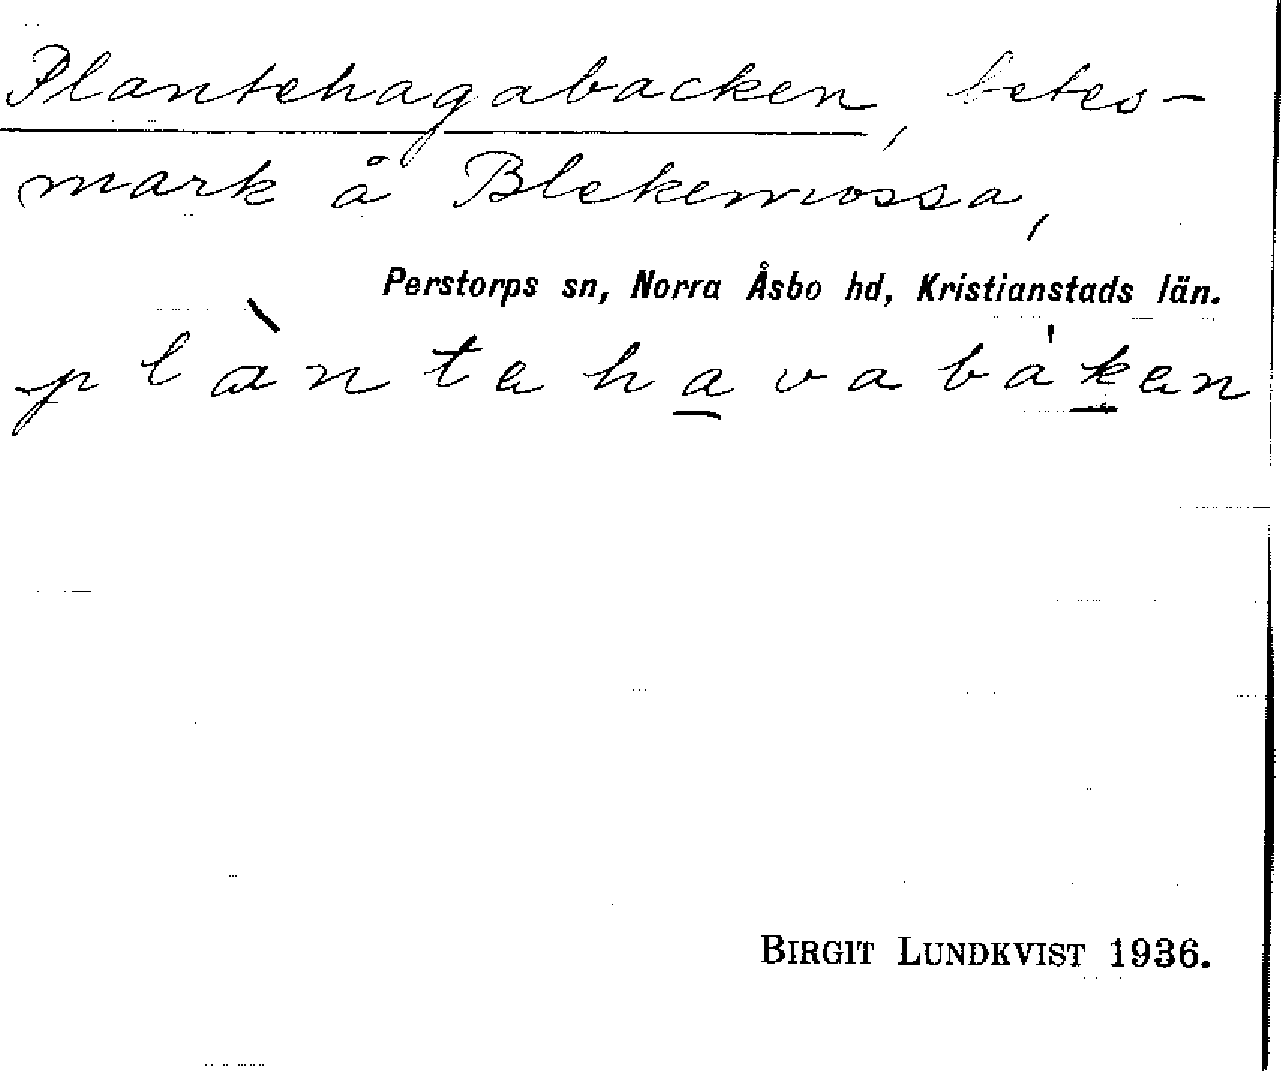 Plantehagabacken, betes-
mark å Blekemossa,
Perstorps sn, Norra Åsbo hd, Kristianstads län.
plàntahavabákan
BIRGIT LUNDKVIST 1936.